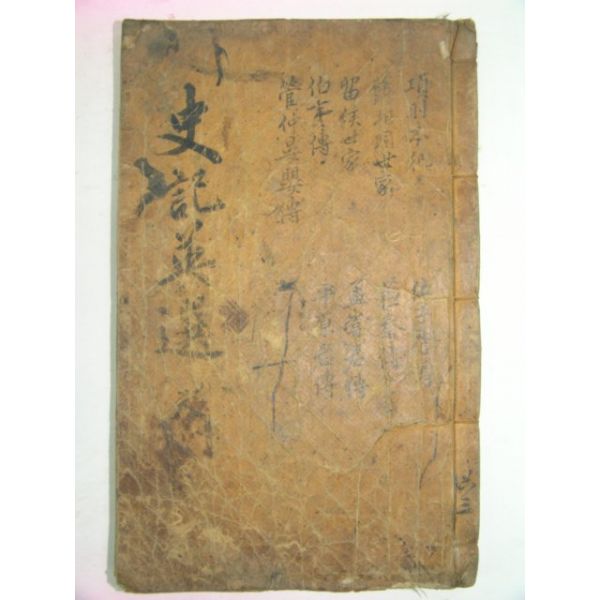 史記英選
項羽本紀
蕭相國世家
留侯世家
伯夷傳
管仲晏嬰傳
伍子胥傳
蘇秦傳
孟嘗君傳
平原君傳
共三